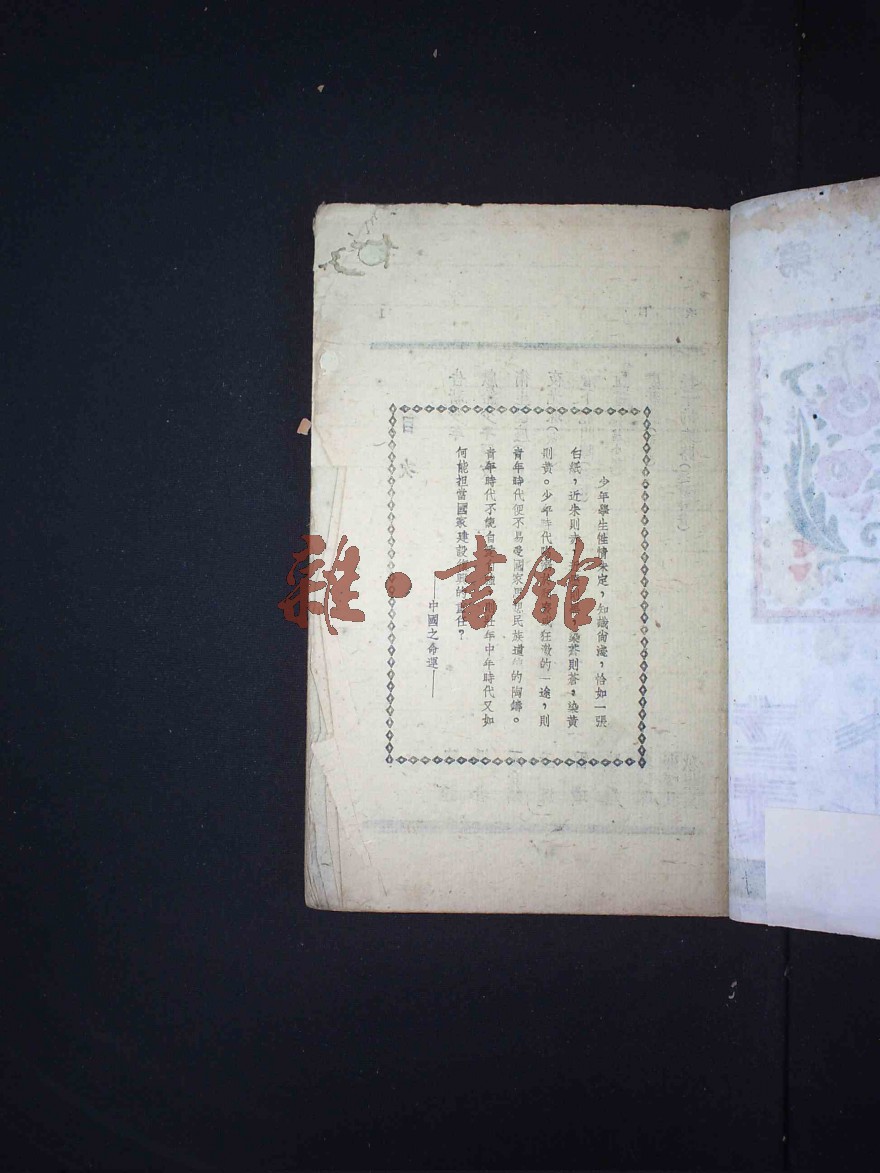 少年學生性情未定,知識尙淺,恰如一張
白紙,近朱則赤,染蒼則蒼,染黃
則黃。少年時代狂瀾的一途,則
青年時代便不易受國家民族的陶鑄。
青年時代不能自壯年中年時代又如
何能担當國家建設的重任?
——中國之命運——
雜·書館
目次